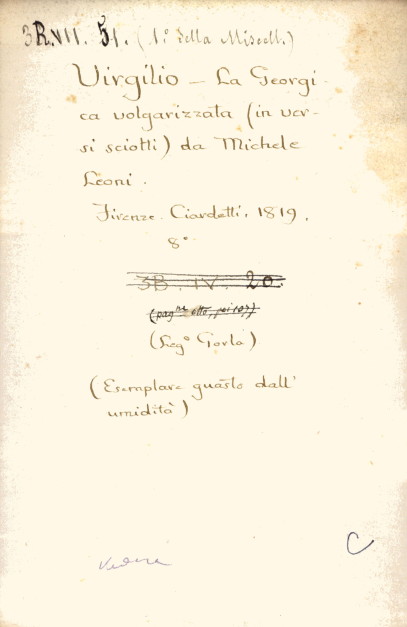 3R.VII. 51. (1º della Miscell.)
Virgilio – La Georgi-
ca volgarizzata (in ver-
si sciolti) da Michele
Leoni.
Firenze. Ciardetti, 1819.
8º
3B. IV. 20.
(pag.ne otto, poi 107)
(Leg.º Gorla)
(Esemplare guasto dall'
umidità)
Vedere
C